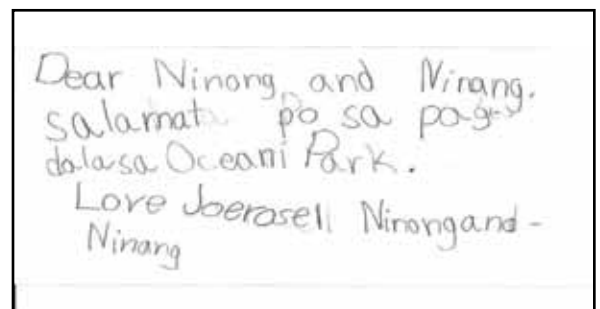 Dear Ninong and Ninang.
salamat po sa pag-
dalasa Oceani Park.
Love Joerosell Ninongand-
Ninang